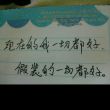 现在的我一切都好.
假装的一切都好.